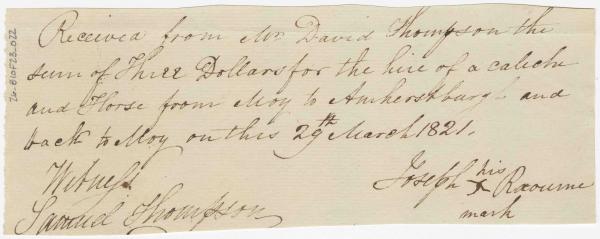 Received from Mr. David Thompson the
sum of Three Dollars for the hire of a caleche
and Horse from Moy to Amherstburgh and
back to Moy on this 29th March 1821.
Witness
Samuel Thompson
Joseph his X Racurme
mark